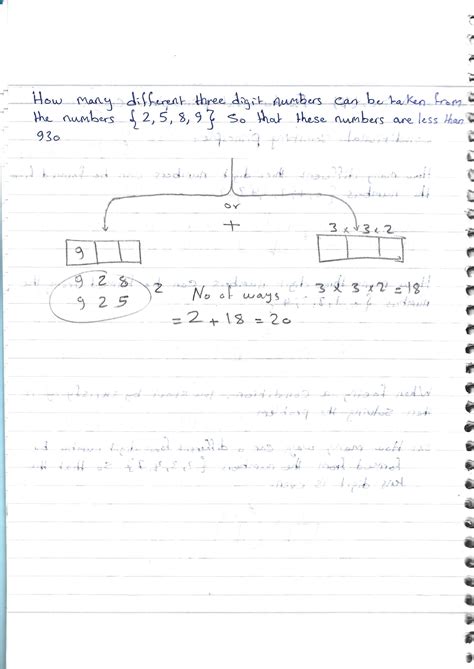 How many different three digit numbers can be taken from
the numbers {2,5,8,9} So that these numbers are less than
930
or
+
3 x 3 x 2
9
9 2 8
9 2 5
2
No of ways
= 2 + 18 = 20
3 x 3 x 2 = 18